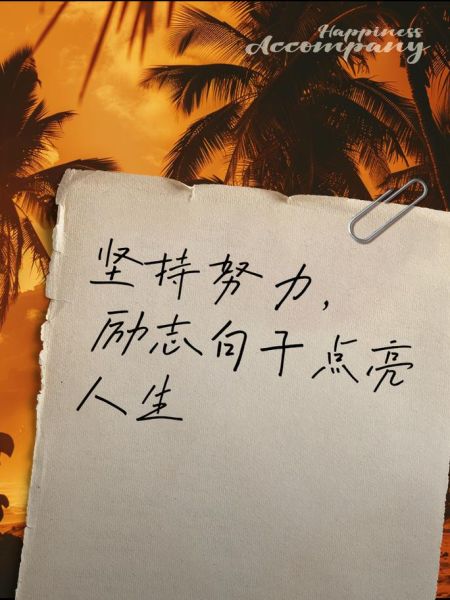 Happiness
Accompany
坚持努力,
励志句子点亮
人生